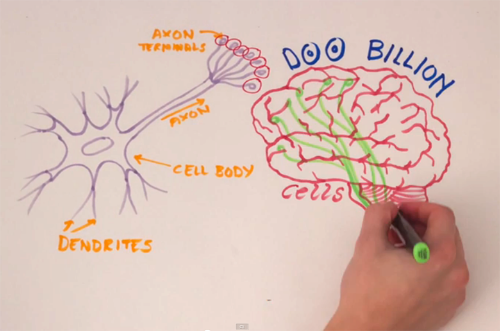 AXON
TERMINALS
100 BILLION
AXON
CELL BODY
cells
DENDRITES